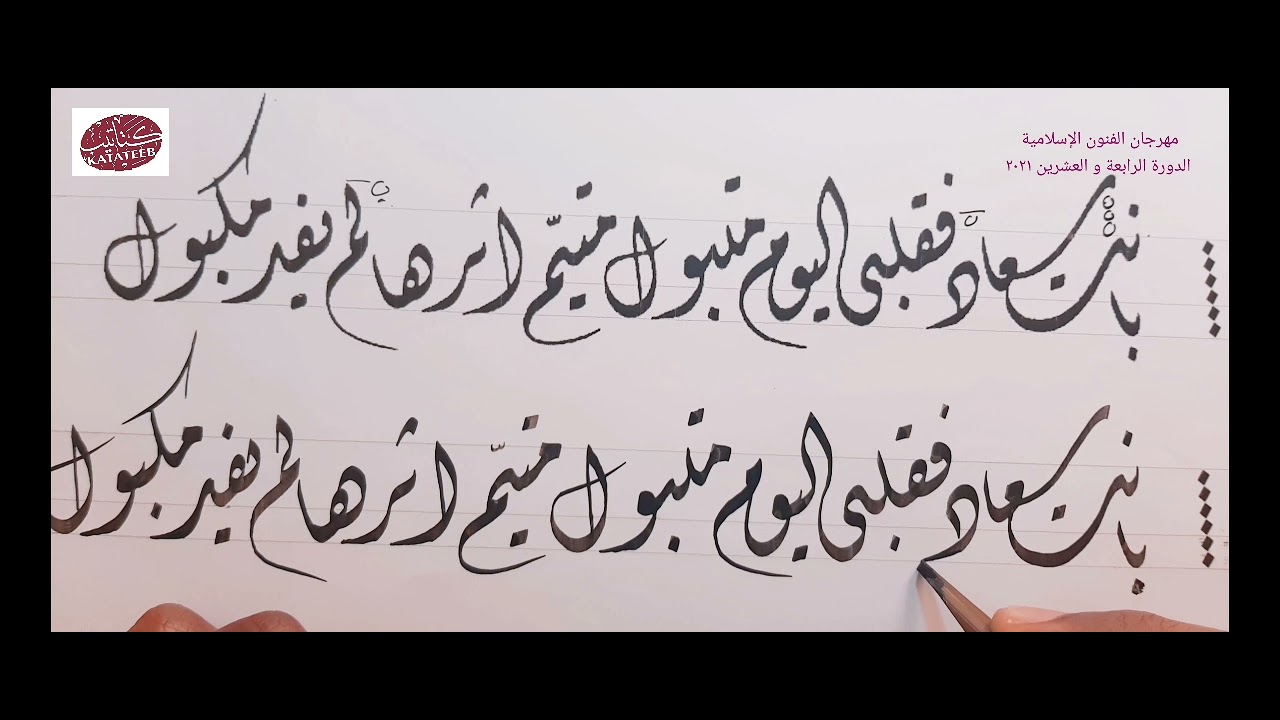 كتاتيب
KATATEEB
مهرجان الفنون الإسلامية
الدورة الرابعة و العشرين ٢٠٢١
بانت سعاد فقلبى اليوم متبول متيّم اثرها لم يفد مكبول
بانت سعاد فقلبى اليوم متبول متيّم اثرها لم يفد مكبول